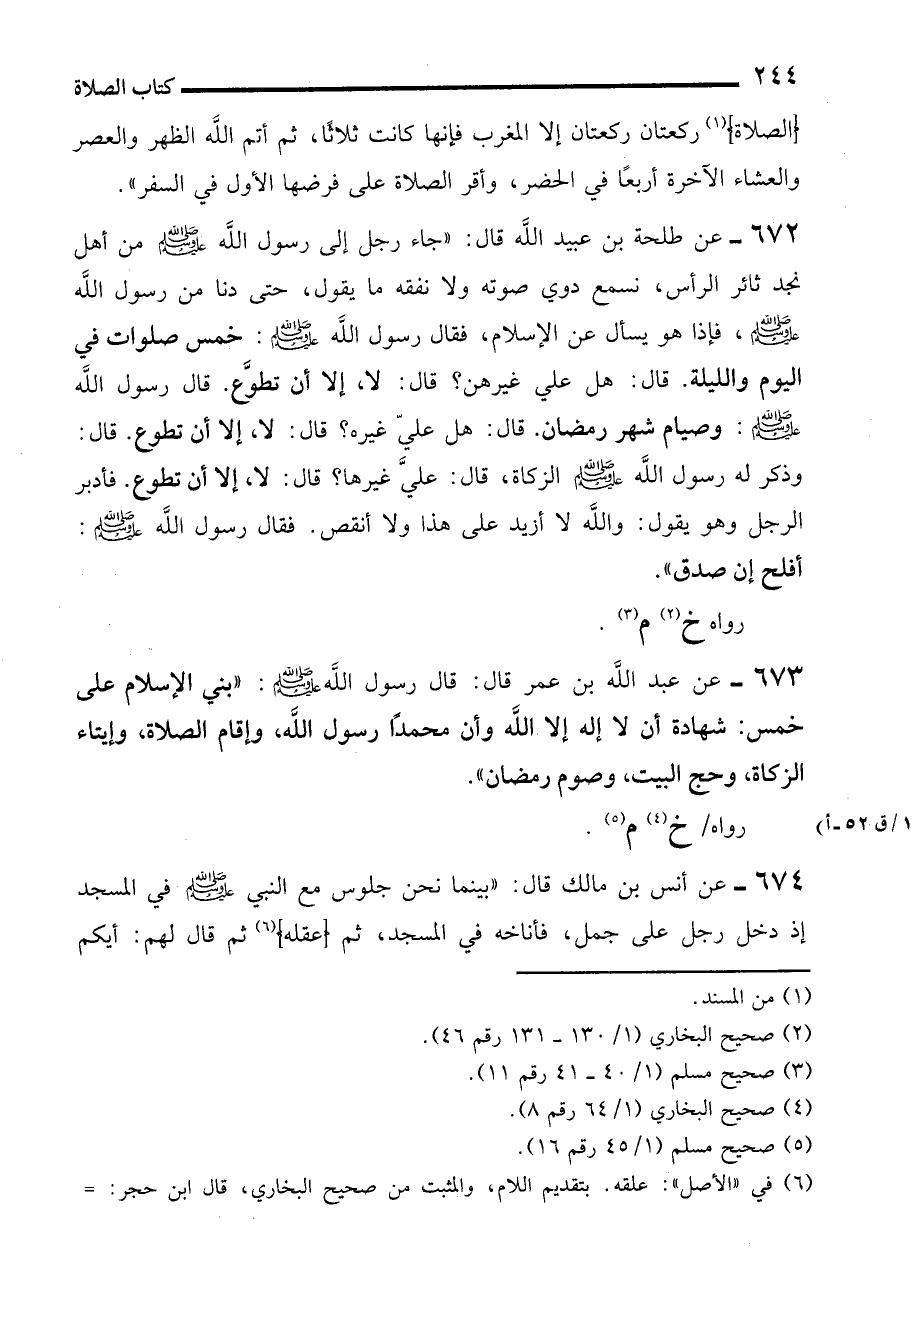 ٢٤٤ كتاب الصلاة
{الصلاة}(١) ركعتان ركعتان إلا المغرب فإنها كانت ثلاثًا، ثم أتم اللَّه الظهر والعصر
والعشاء الآخرة أربعًا في الحضر، وأقر الصلاة على فرضها الأول في السفر».
٦٧٢ ـ عن طلحة بن عبيد اللَّه قال: «جاء رجل إلى رسول اللَّه ﷺ من أهل
نجد ثائر الرأس، نسمع دوي صوته ولا نفقه ما يقول، حتى دنا من رسول اللَّه
ﷺ، فإذا هو يسأل عن الإسلام، فقال رسول اللَّه ﷺ: خمس صلوات في
اليوم والليلة. قال: هل علي غيرهن؟ قال: لا، إلا أن تطوَّع. قال رسول اللَّه
ﷺ: وصيام شهر رمضان. قال: هل عليّ غيره؟ قال: لا، إلا أن تطوع. قال:
وذكر له رسول اللَّه ﷺ الزكاة، قال: عليَّ غيرها؟ قال: لا، إلا أن تطوع. فأدبر
الرجل وهو يقول: واللَّه لا أزيد على هذا ولا أنقص. فقال رسول اللَّه ﷺ:
أفلح إن صدق».
رواه خ(٢) م(٣).
٦٧٣ ـ عن عبد اللَّه بن عمر قال: قال رسول اللَّه ﷺ: «بني الإسلام على
خمس: شهادة أن لا إله إلا اللَّه وأن محمدًا رسول اللَّه، وإقام الصلاة، وإيتاء
الزكاة، وحج البيت، وصوم رمضان».
رواه/ خ(٤) م(٥). ١/ق ٥٢-أ)
٦٧٤ ـ عن أنس بن مالك قال: «بينما نحن جلوس مع النبي ﷺ في المسجد
إذ دخل رجل على جمل، فأناخه في المسجد، ثم {عقله}(٦) ثم قال لهم: أيكم
(١) من المسند.
(٢) صحيح البخاري (١/ ١٣٠ ـ ١٣١ رقم ٤٦).
(٣) صحيح مسلم (١/ ٤٠ ـ ٤١ رقم ١١).
(٤) صحيح البخاري (١/ ٦٤ رقم ٨).
(٥) صحيح مسلم (١/ ٤٥ رقم ١٦).
(٦) في «الأصل»: علقه. بتقديم اللام، والمثبت من صحيح البخاري، قال ابن حجر: =